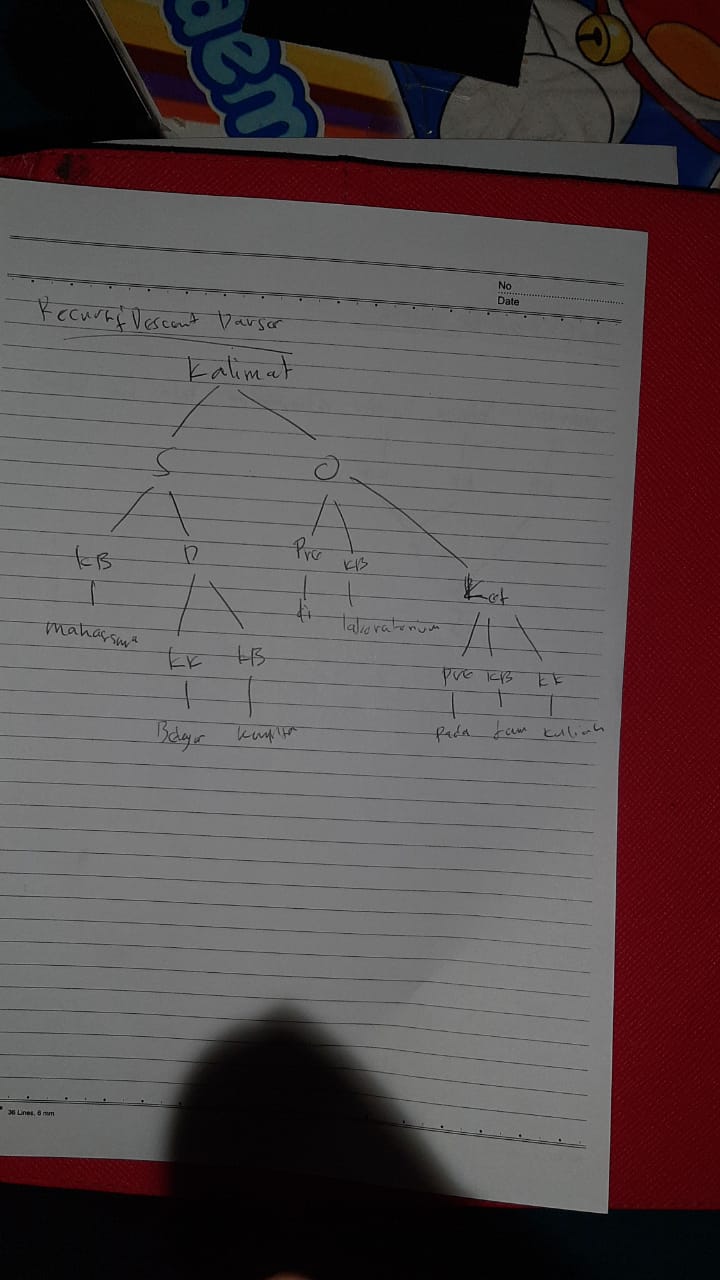 aem
No
Date
Recursif Descent Parser
Kalimat
S O
KB P Pre KB
Ket
mahasiswa di laboratorium
KK KB Pre KB KK
Belajar pada Jam kuliah
36 Lines, 6 mm